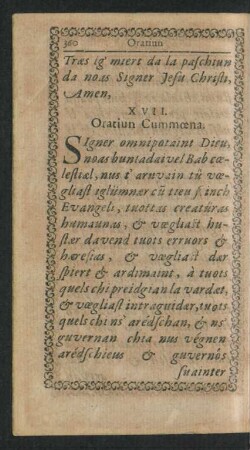 360 Oratiun
Træs ig' miert da la paschiun
da noas Signer Jesu Christi,
Amen,
XVII.
Oratiun Cummœna.
SIgner omnipotaint Dieu,
noas buntadaivel Bab cœ-
lestiæl, nus t' aruvain tü væ-
gliast iglümner cū tieu s. inch
Evangeli, tuottas creatüras
humaunas, & vœgliast hu-
stær davend tuots erruors &
hæresias, & vœgliast dar
spiert & ardimaint, à tuots
quels chi preidgian la vardæt,
& vœgliast intraguidar, tuots
quels chi ns' arédschan, & ns'
guvernan chia nus végnen
arédschieus & guvernôs
suainter